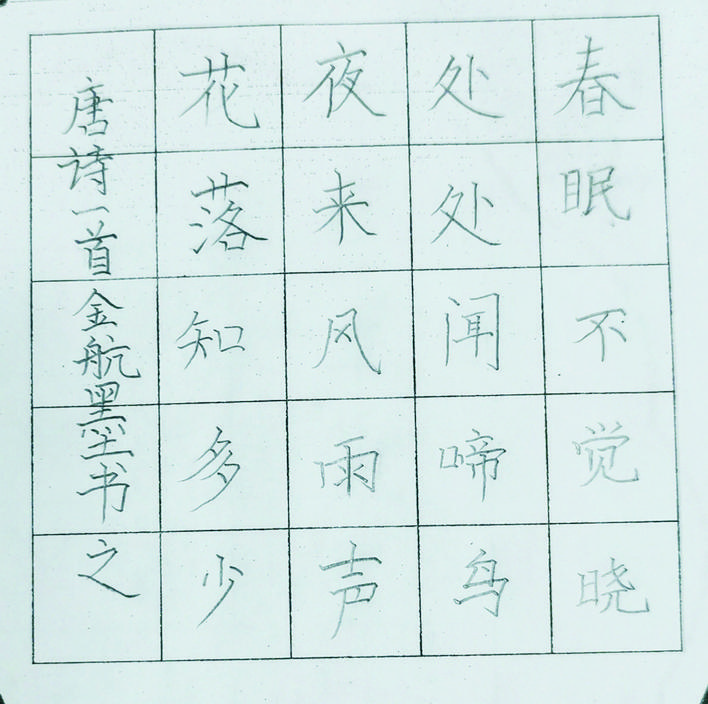 春眠不觉晓
处处闻啼鸟
夜来风雨声
花落知多少
唐诗一首金航墨书之